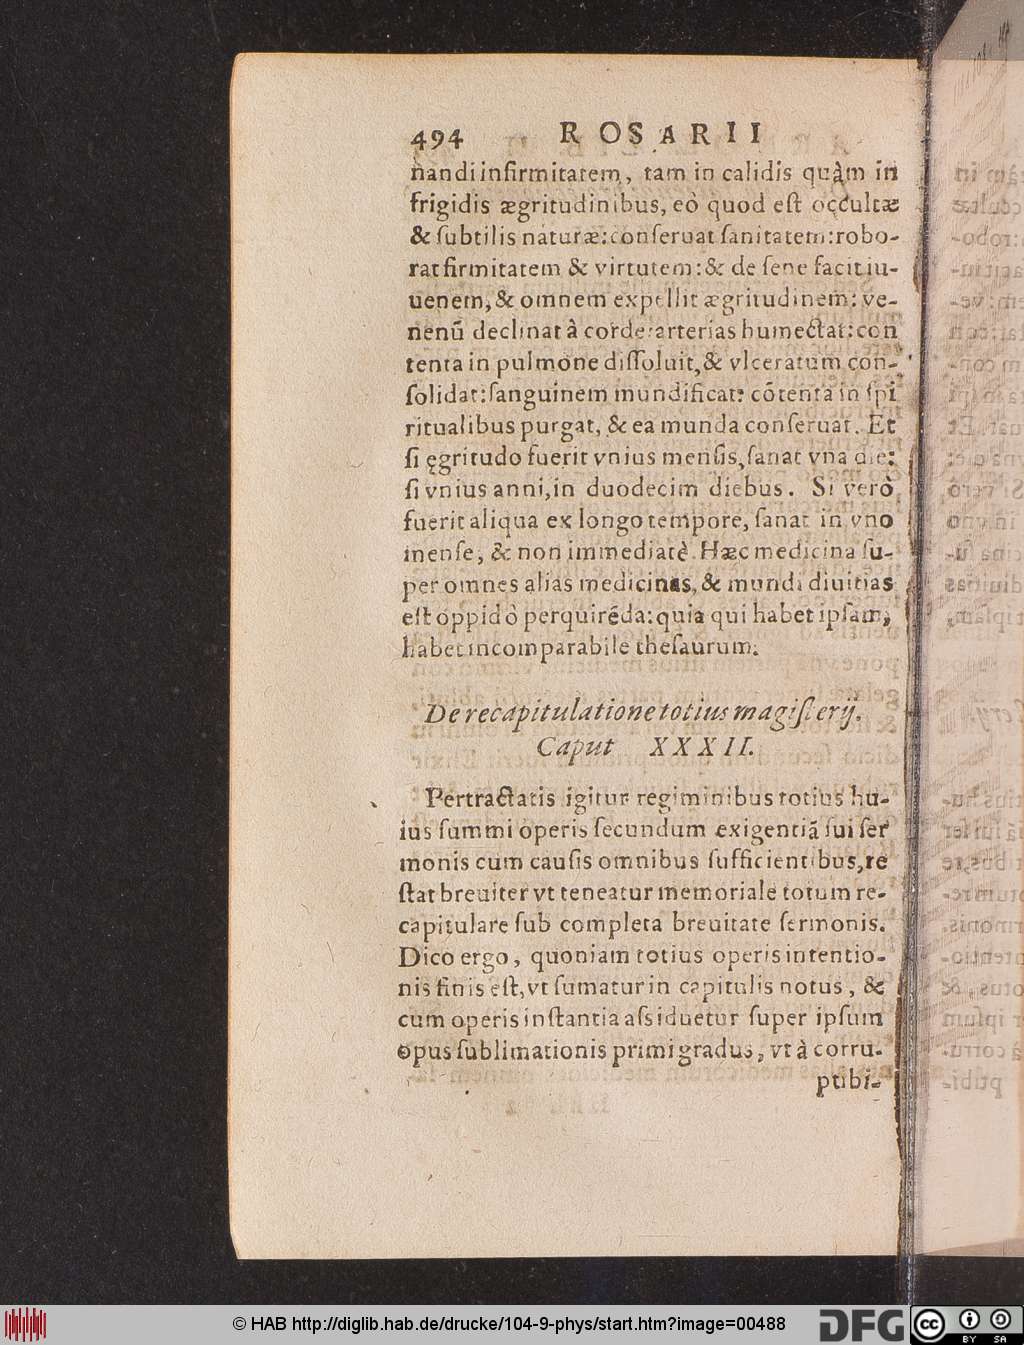 494 ROSARII
nandi infirmitatem, tam in calidis quàm in
frigidis ægritudinibus, eò quod est occultæ
& subtilis naturæ: conseruat sanitatem: robo-
rat firmitatem & virtutem: & de sene facit iu-
uenem, & omnem expellit ægritudinem: ve-
nenū declinat à corde: arterias humectat: con
tenta in pulmone dissoluit, & vlceratum con-
solidat: sanguinem mundificat: cōtenta in spi
ritualibus purgat, & ea munda conseruat. Et
si ęgritudo fuerit vnius mensis, sanat vna die:
si vnius anni, in duodecim diebus. Si verò
fuerit aliqua ex longo tempore, sanat in vno
mense, & non immediatè. Hæc medicina su-
per omnes alias medicinas, & mundi diuitias
est oppidò perquirēda: quia qui habet ipsam,
habet incomparabile thesaurum.
De recapitulatione totius magisterij.
Caput XXXII.
Pertractatis igitur regiminibus totius hu-
ius summi operis secundum exigentiā sui ser
monis cum causis omnibus sufficientibus, re
stat breuiter vt teneatur memoriale totum re-
capitulare sub completa breuitate sermonis.
Dico ergo, quoniam totius operis intentio-
nis finis est, vt sumatur in capitulis notus, &
cum operis instantia assiduetur super ipsum
opus sublimationis primi gradus, vt à corru-
ptibi-
© HAB http://diglib.hab.de/drucke/104-9-phys/start.htm?image=00488
DFG
cc BY SA